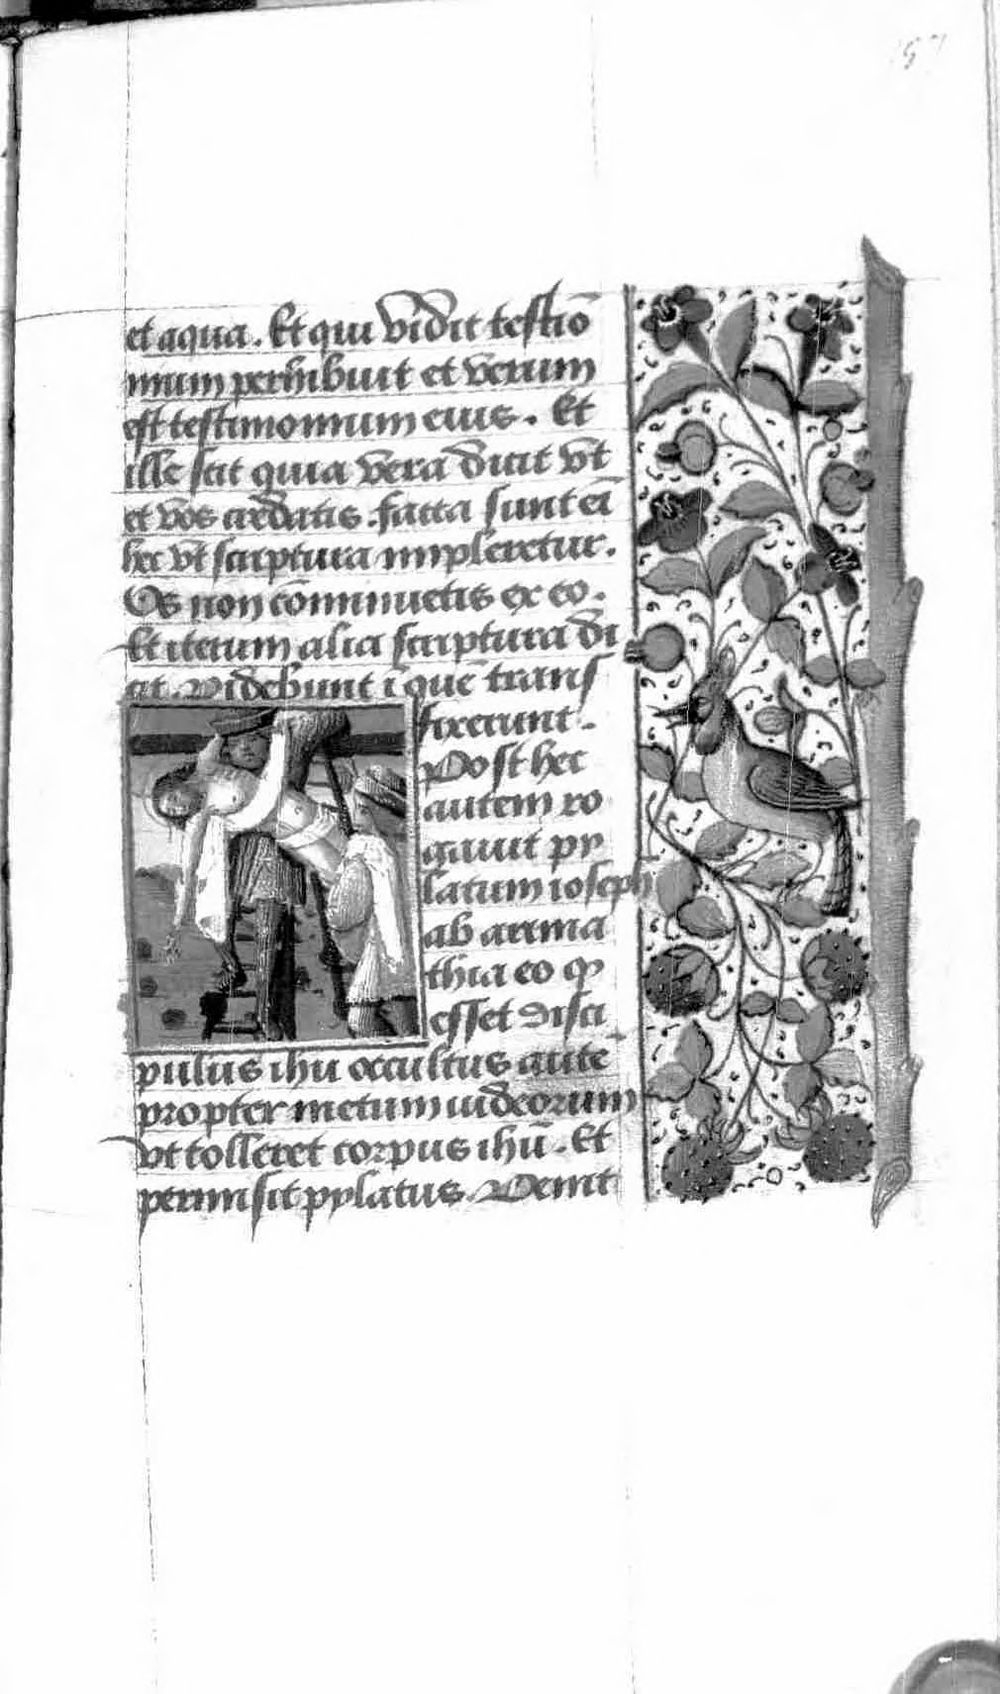 57
et aqua. Et qui vidit testiō
nium perhibuit et verum
est testimonium eius. Et
ille scit quia vera dicit vt
et vos credatis. facta sunt eī
hec vt scriptura impleretur.
Os non cōminuetis ex eo.
Et iterum alia scriptura di
cit. Videbunt ī quē trans
fixerunt.
Post hec
autem ro
gauit py
latum ioseph
ab arima
thia eo ꝙ
esset disci
pulus ihu occultus autē
propter metum iudeorum
vt tolleret corpus ihū. Et
permisit pylatus. Venit